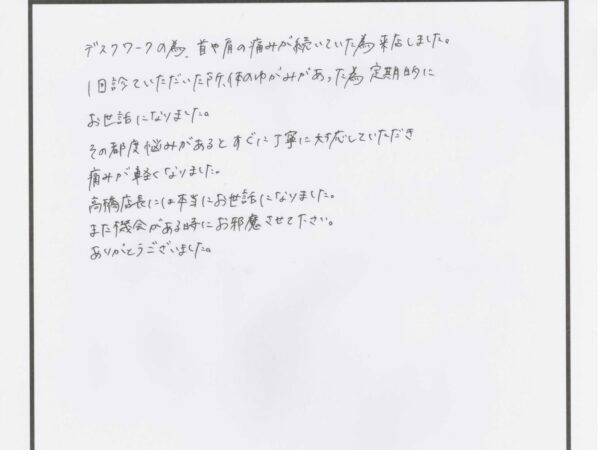 デスクワークの為、首や肩の痛みが続いていた為来店しました。
1回診ていただいた所、体のゆがみがあった為定期的に
お世話になりました。
その都度悩みがあるとすぐに丁寧に対応していただき
痛みが軽くなりました。
高橋店長には本当にお世話になりました。
また機会がある時にお邪魔させて下さい。
ありがとうございました。